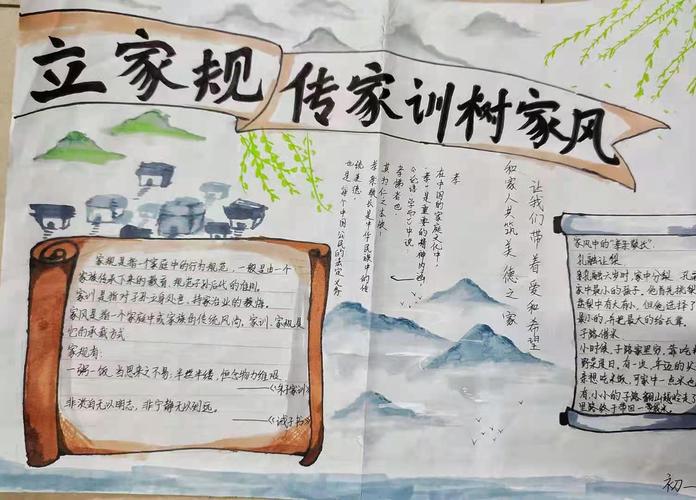 立家规 传家训树家风
家规是指一个家庭中的行为规范，一般是由一个
家族传承下来的教育，规范子孙后代的准则。
家训是指对子孙立身处世，持家治业的教诲。
家风是指一个家庭中或家族的传统风尚，家训、家规是
它的承载方式
家规有：
一粥一饭，当思来之不易；半丝半缕，恒念物力维艰
——《朱子家训》
非淡泊无以明志，非宁静无以致远。
——《诫子书》
孝
在中国的家庭文化中，
“孝”是重要的精神内涵
《论语·学而》中说
孝悌者也，
其为仁之本欤！
孝亲敬长是中华民族中的传
统美德，
也是每个中国公民的法定义务
让我们带着爱和希望
和家人共筑美德之家
家风中的“孝亲敬长”
孔融让梨
孔融六岁时，家中分梨，孔
家中最小的孩子，他首先挑梨
梨中有大有小，但他选择了
最小的，并把最大的给长辈。
子路借米
小时候，子路家里穷，靠吃
野菜度日，有一次，年迈的父
想吃米饭，可家中一点米
有，小小的子路翻山越岭走了
里路终于带回一带米
初一